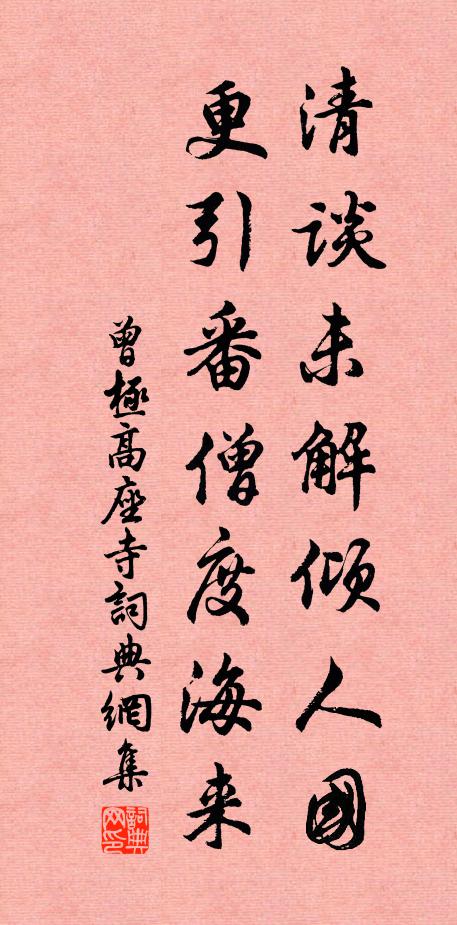 清談未解傾人國
更引番僧度海来
曾極高座寺詞典網集
詞典网印